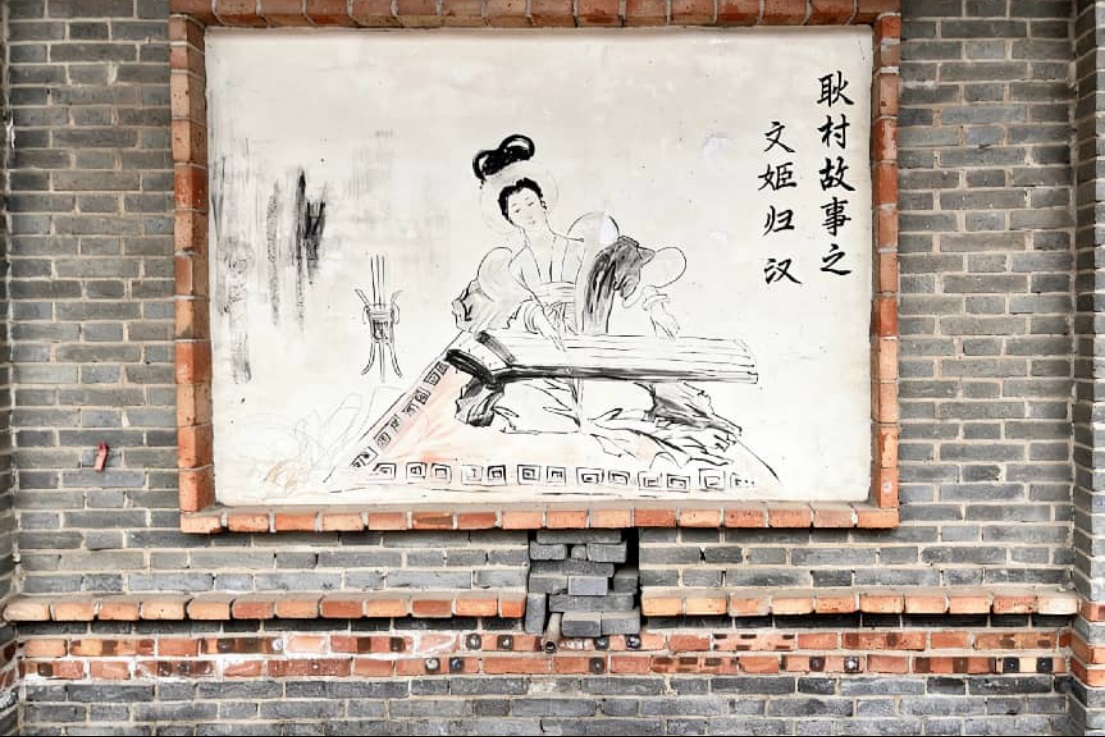 耿村故事之
文姬归汉